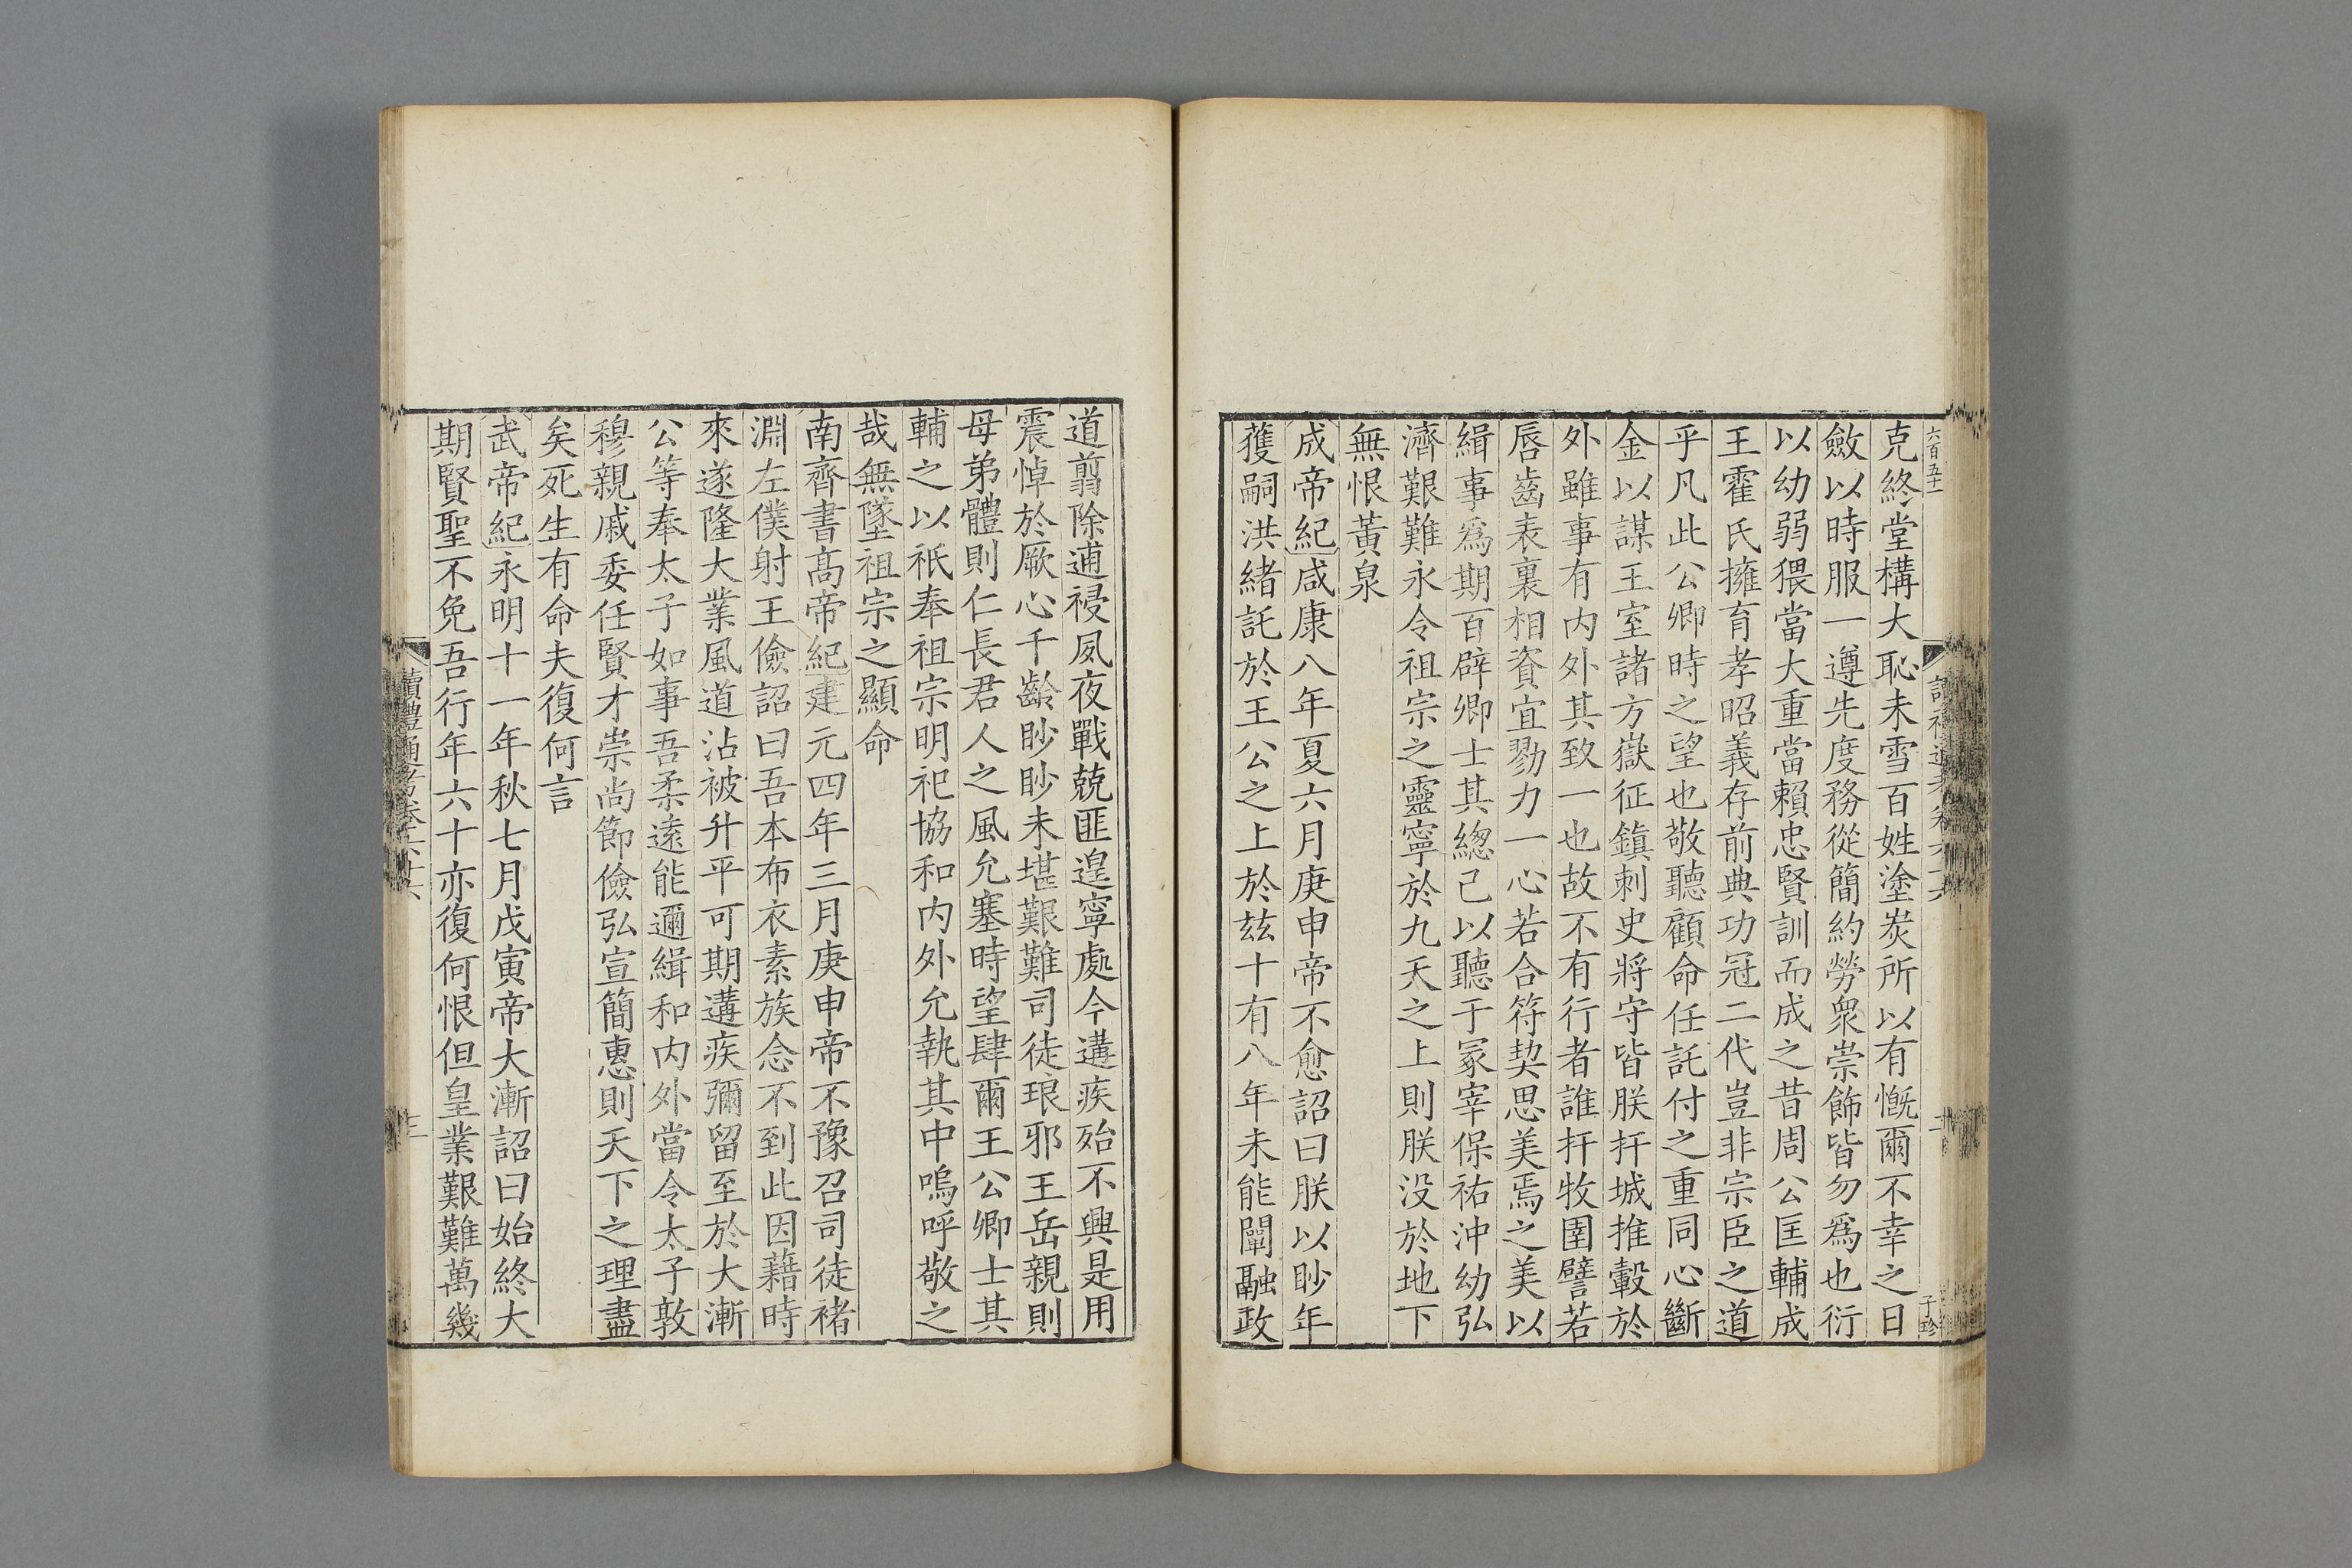 六百五十一
克終堂構大恥未雪百姓塗炭所以有慨爾不幸之日
斂以時服一遵先度務從簡約勞衆崇飾皆勿爲也衍
以幼弱猥當大重當賴忠賢訓而成之昔周公匡輔成
王霍氏擁育孝昭義存前典功冠二代豈非宗臣之道
乎凡此公卿時之望也敬聽顧命任託付之重同心斷
金以謀王室諸方嶽征鎮刺史將守皆朕扞城推轂於
外雖事有内外其致一也故不有行者誰扞牧圉譬若
唇齒表裏相資宜勠力一心若合符契思美焉之美以
緝事爲期百辟卿士其緫己以聽于冢宰保祐沖幼弘
濟艱難永令祖宗之靈寧於九天之上則朕没於地下
無恨黃泉
成帝紀咸康八年夏六月庚申帝不愈詔曰朕以眇年
獲嗣洪緒託於王公之上於兹十有八年未能闡融政
道翦除逋祲夙夜戰兢匪遑寧處今遘疾殆不興是用
震悼於厥心千齡眇眇未堪艱難司徒琅邪王岳親則
母弟體則仁長君人之風允塞時望肆爾王公卿士其
輔之以祇奉祖宗明祀協和内外允執其中嗚呼敬之
哉無墜祖宗之顯命
南齊書高帝紀建元四年三月庚申帝不豫召司徒褚
淵左僕射王儉詔曰吾本布衣素族念不到此因藉時
來遂隆大業風道沾被升平可期遘疾彌留至於大漸
公等奉太子如事吾柔遠能邇緝和内外當令太子敦
穆親戚委任賢才崇尚節儉弘宣簡惠則天下之理盡
矣死生有命夫復何言
武帝紀永明十一年秋七月戊寅帝大漸詔曰始終大
期賢聖不免吾行年六十亦復何恨但皇業艱難萬幾
讀禮通考卷六十六